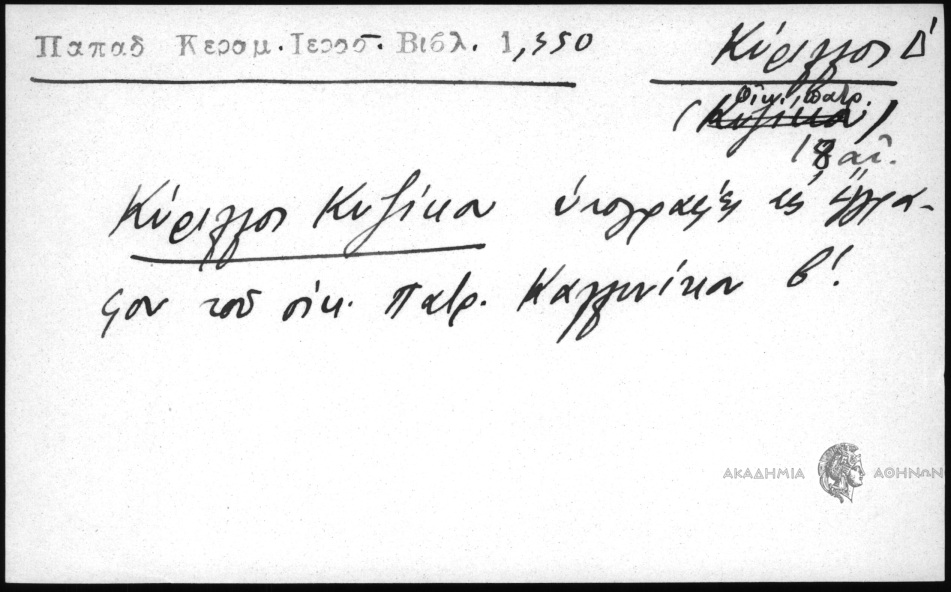 Παπαδ Κεραμ. Ιεροσ. Βιβλ. 1,350
Κύριλλος Δ'
οἰκ. πατρ.
(Κυζίκου)
18 αἰ.
Κύριλλος Κυζίκου ὑπογραφεὺς εἰς ἔγγρα-
φον τοῦ οἰκ. πατρ. Καλλινίκου β'.
ΑΚΑΔΗΜΙΑ ΑΘΗΝΩΝ